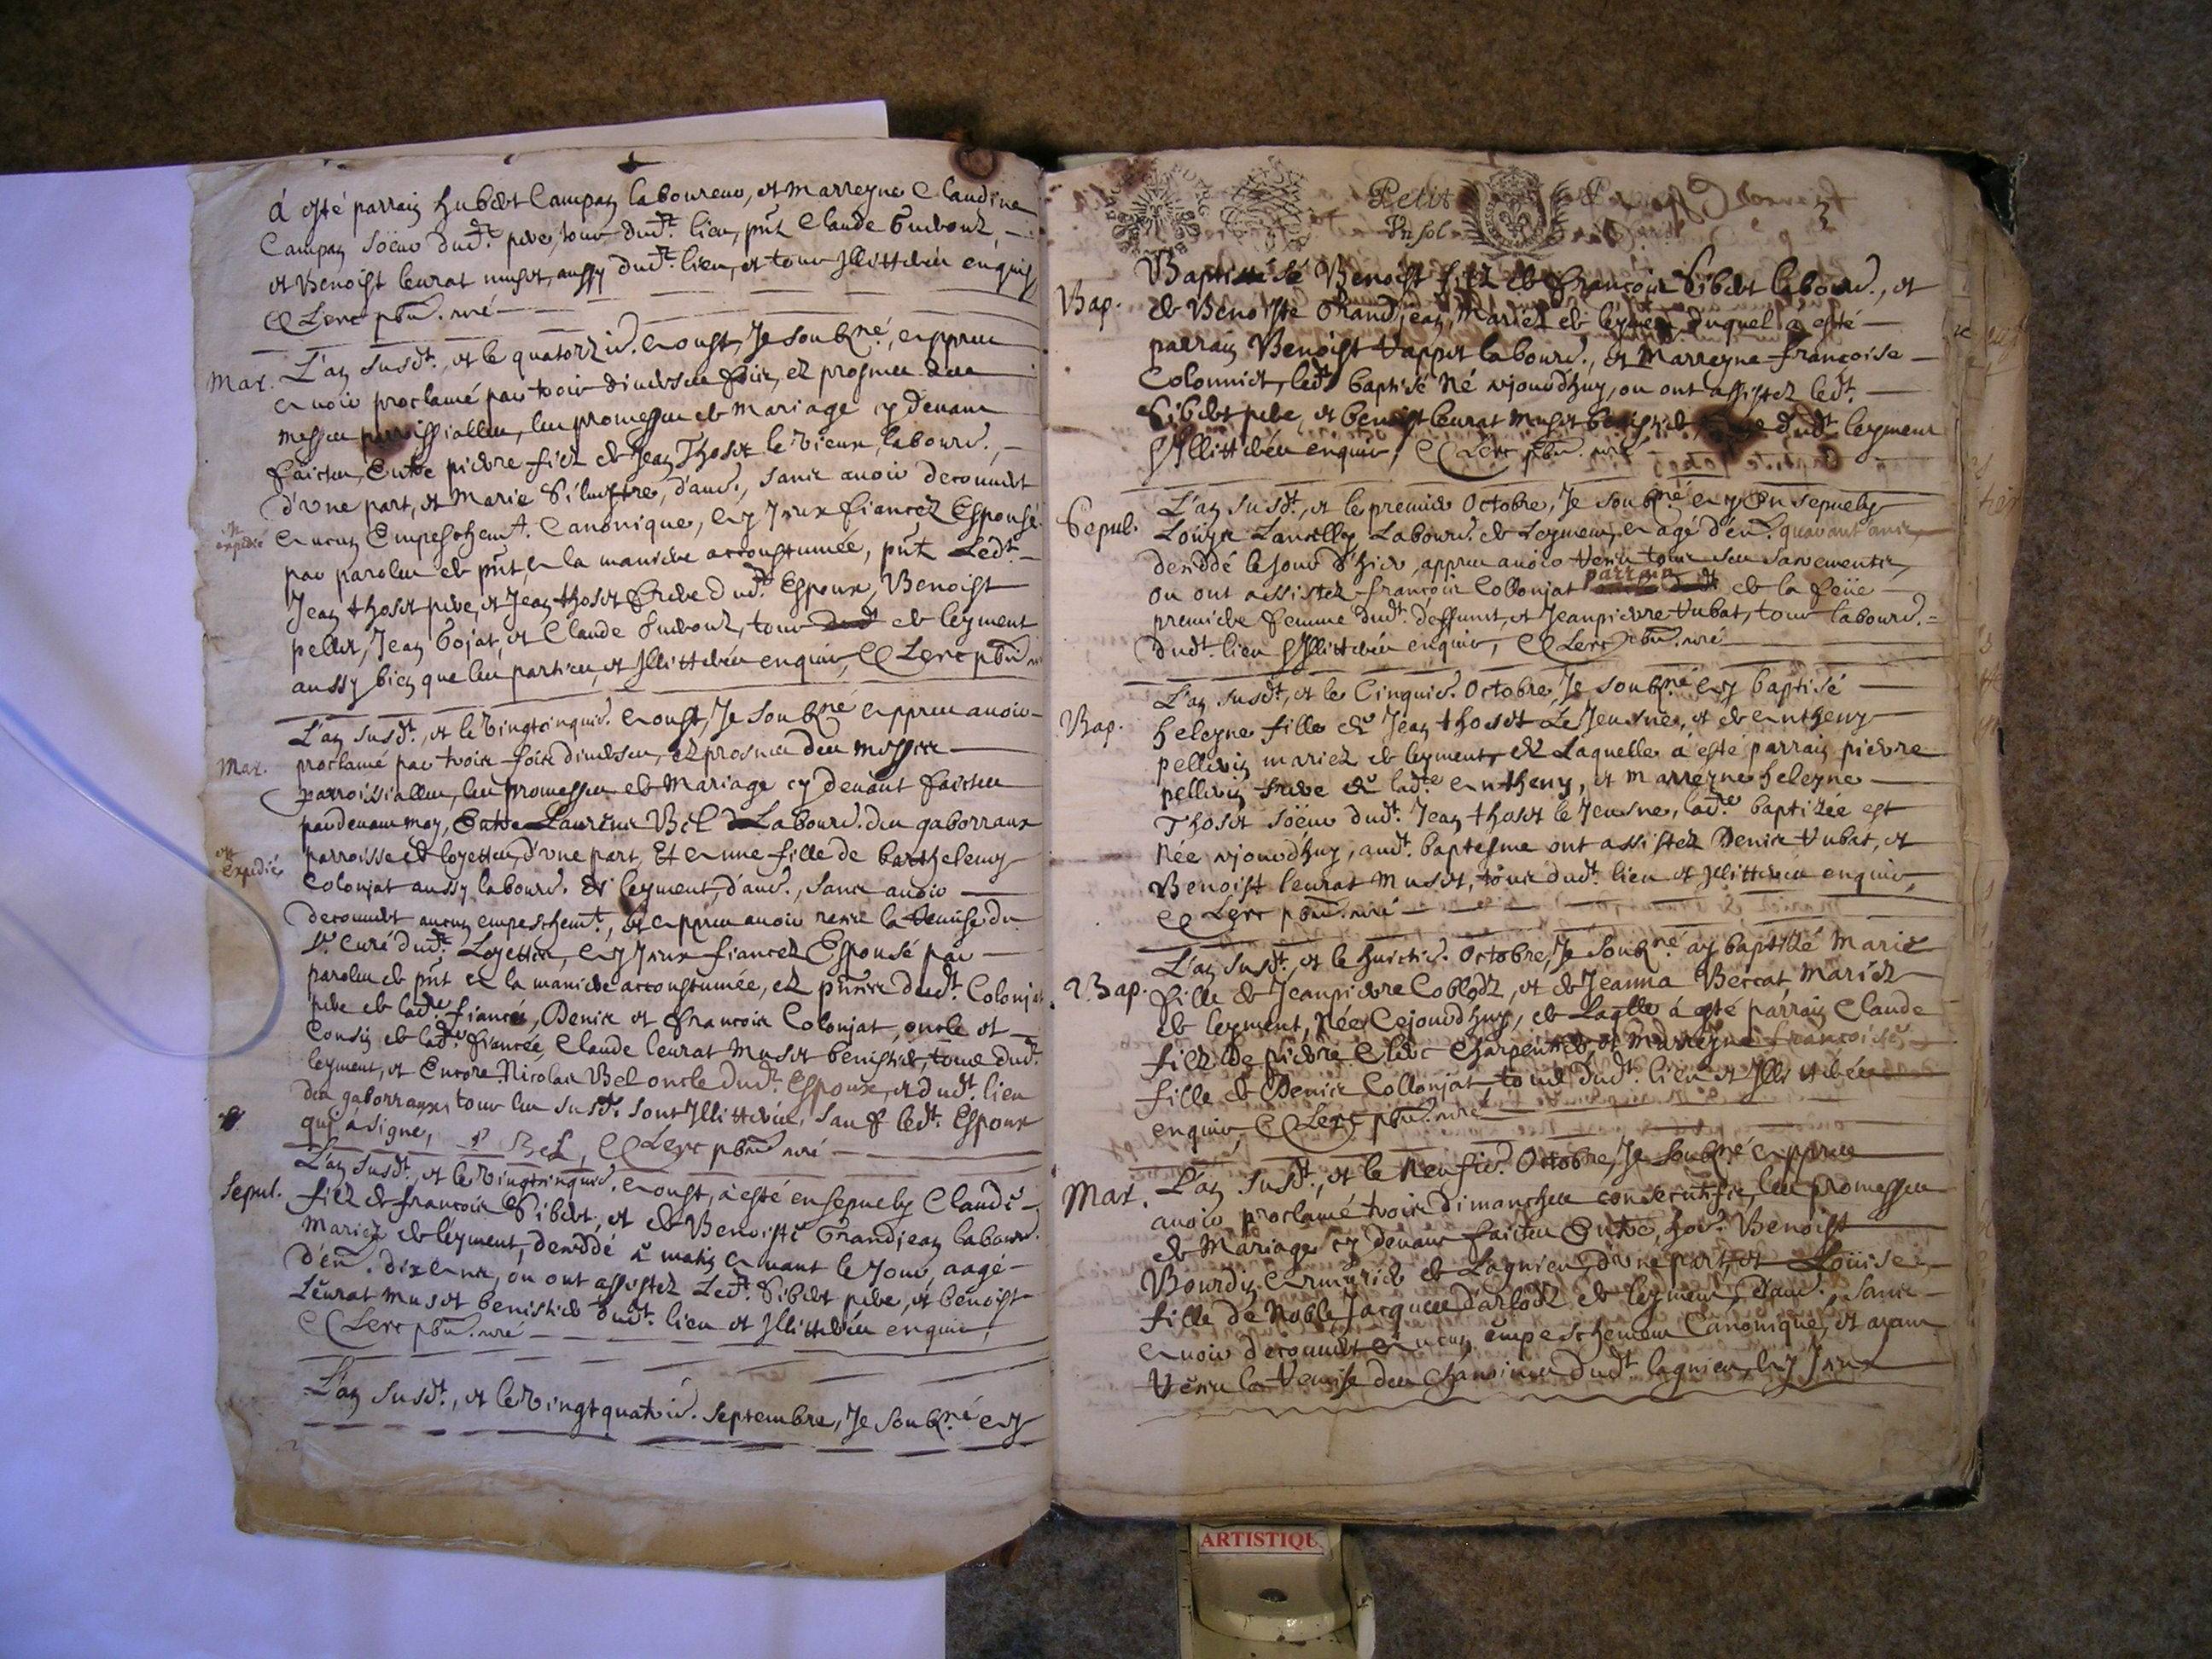 à esté parrain hubert Campan laboureur, et marreyne Claudine
Campan soeur dud.t pere, tous dud.t lieu, pnt Claude
et Benoist leurat muset, aussy dud.t lieu, et tous Illitterés enquis,
Clerc pbr. curé
Mar.
L'an susd.t, et le quatorzie. Aoust, Je soubz.né, appres
avoir proclamé par trois diverses fois, ez prosnes des
messes parroissialles, les promesses de mariage cy devant
faictes, Entre pierre filz de Jean Thoset le vieux, labour.,
d'une part, et Marie Silvestre, d'au.e, sans avoir decouvert
Aucun Empeschem.t Canonique, Ay Iceux fiancez Espousé
expedié
par parolles de pnt, en la maniere accoustumée, pnt Led.t
Jean thoset pere, et Jean thoset frere dud.t Espoux, Benoist
pellet, Jean Gojat, et Claude, tous de leyment
aussy bien que les parties, et Illitterés enquis, Clerc pbr.
L'an susd.t, et le vingtcinquie. Aoust, Je soubz.né appres avoir
Mar.
proclamé par trois fois diverses, ez prosnes des messes
parroissialles, les promesses de Mariage cy devant faictes
pardevant moy, Entre Laurent Bel Labour. des gaborraux
parroisse de loyettes, d'une part, Et Anne fille de barthelemy
expedié
Colonjat aussy labour. de leyment, d'au.e, sans avoir
decouvert aucun empeschem.t, et appres avoir receu la remise du
Sr. curé dud.t Loyettes, Ay Iceux fiancez Espousé par
parolles de pnt en la maniere accoustumée, ez pnces dud.t Colonjat
pere de lad.te fiancée, Denis et françois Colonjat, oncle et
Cousin de lad.te fiancée, Claude leurat muset benistier, tous dud.t
leyment, et Encore Nicolas Bel oncle dud.t Espoux, et dud.t lieu
des gaborraux, tous les susd.ts sont Illitterés, sauf led.t Espoux
qui a signé, Bel, Clerc pbr. curé
L'an susd.t, et le vingtcinquie. Aoust, à esté ensepvely Claude
Sepul.
filz de françois Sibert, et de Benoiste Grandjean labour.
Mariez de leyment, deceddé ce matin avant le jour, aagé
d'en. dix ans, où ont assistez Led.t Sibert pere, et benoist
Leurat muset benistier dud.t lieu et Illitterés enquis,
Clerc pbr. curé
L'an susd.t, et le vingtquatrie. septembre, Je soubz.né ay
Petit Papier
Un sol
Bap.
Baptisé Benoist filz de françois Sibert labour., et
de Benoiste Grandjean, Mariez de leyment, duquel à esté
parrain Benoist tappet labour., et Marreyne françoise
Colonniat, led.t baptisé né ajourdhuy, ou ont assistez led.t
Sibert pere, et benoist leurat Muset benistier, dud.t leyment
Illitterés enquis, Clerc pbr. curé
Sepul.
L'an susd.t, et le premier Octobre, Je soubz.né ay Ensepvely
Louys Lancilly Labour. de Leyment, Aagé d'en. quarant ans,
deceddé le jour d'hier, appres avoir receu tous ses sacrements,
ou ont assistez françois Collonjat parrain de la feüe
premiere femme dud.t deffunct, et Jeanpierre tubat, tous labour.
dud.t lieu Illitterés enquis, Clerc pbr. curé
Bap.
L'an susd.t, et le Cinquie. Octobre, Je soubz.né ay baptisé
heleyne fille de Jean thoset Le Jeusne, et de Antheny
pellerin mariez de leyment, de Laquelle à esté parrain pierre
pellerin frere de lad.te Antheny, et Marreyne heleyne
Thoset soeur dud.t Jean thoset le Jeusne, lad.te baptizée est
Née ajourdhuy, aud.t baptesme ont assistez Denis tubat, et
Benoist leurat Muset, tous dud.t lieu et Illitterés enquis,
Clerc pbr. curé
L'an susd.t, et le huictie. Octobre, Je soubz.né ay baptizé Marie
Bap.
fille de Jeanpierre Coblodz, et de Jeanna Beccat Mariez
de leyment, Née Cejourdhuy, de Laqlle à esté parrain Claude
filz de pierre Clerc Charpentier, et Marreyne françoise
fille de Denis Collonjat, tous dud.t lieu et Illitterés
enquis Clerc pbr. curé
Mar.
L'an susd.t, et le Neufie. Octobre, Je soubz.né appres
avoir proclamé trois dimanches consecutifs, les promesses
de Mariage cy devant faictes Entre, hon. Benoist
Bourdin Armurier de Lagnieu, d'une part, et Loüise
fille de Noble Jacques d'arlodz de leyment, d'au.e, sans
Avoir decouvert Aucun empeschement Canonique, et ayant
receu la remise des chanoines dud.t lagnieu, Ay Iceux
ARTISTIQU